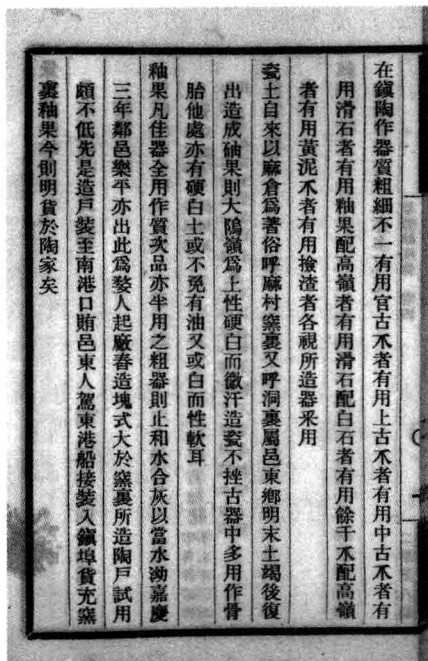 在鎮陶作器質粗細不一有用官古不者有用上古不者有用中古不者有
用滑石者有用釉果配高嶺者有用滑石配白石者有用餘干不配高嶺
者有用黃泥不者有用撿渣者各視所造器采用
瓷土自來以麻倉爲著俗呼麻村窰裏又呼洞裏屬邑東鄉明末土竭後復
出造成釉果則大鄔嶺爲上性硬白而微汗造瓷不挫古器中多用作骨
胎他處亦有硬白土或不免有油又或白而性軟耳
釉果凡佳器全用作質次品亦半用之粗器則止和水合灰以當水泑嘉慶
三年鄰邑樂平亦出此爲婺人起廠舂造塊式大於窰裏所造陶戸試用
頗不低先是造戸裝至南港口賄邑東人駕東港船接裝入鎮埠貨充窰
裏釉果今則明貨於陶家矣